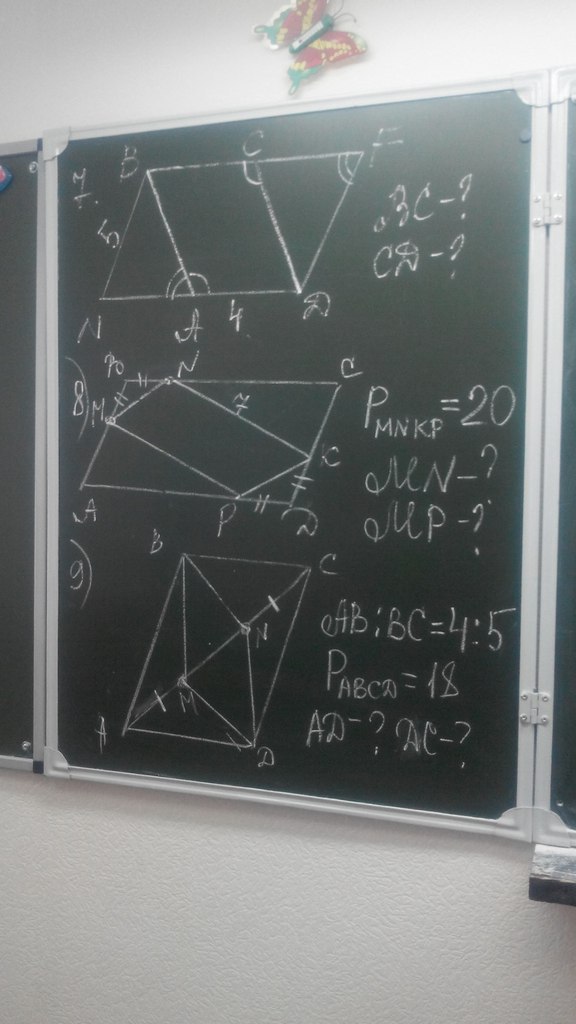 7.
B C F
5
N A 4 D
BC-?
CD-?
8)
B N C
M 7
K
A P D
P MNKP = 20
MN-?
MP-?
9)
B C
N
M
A D
AB:BC=4:5
P ABCD = 18
AD-? DC-?